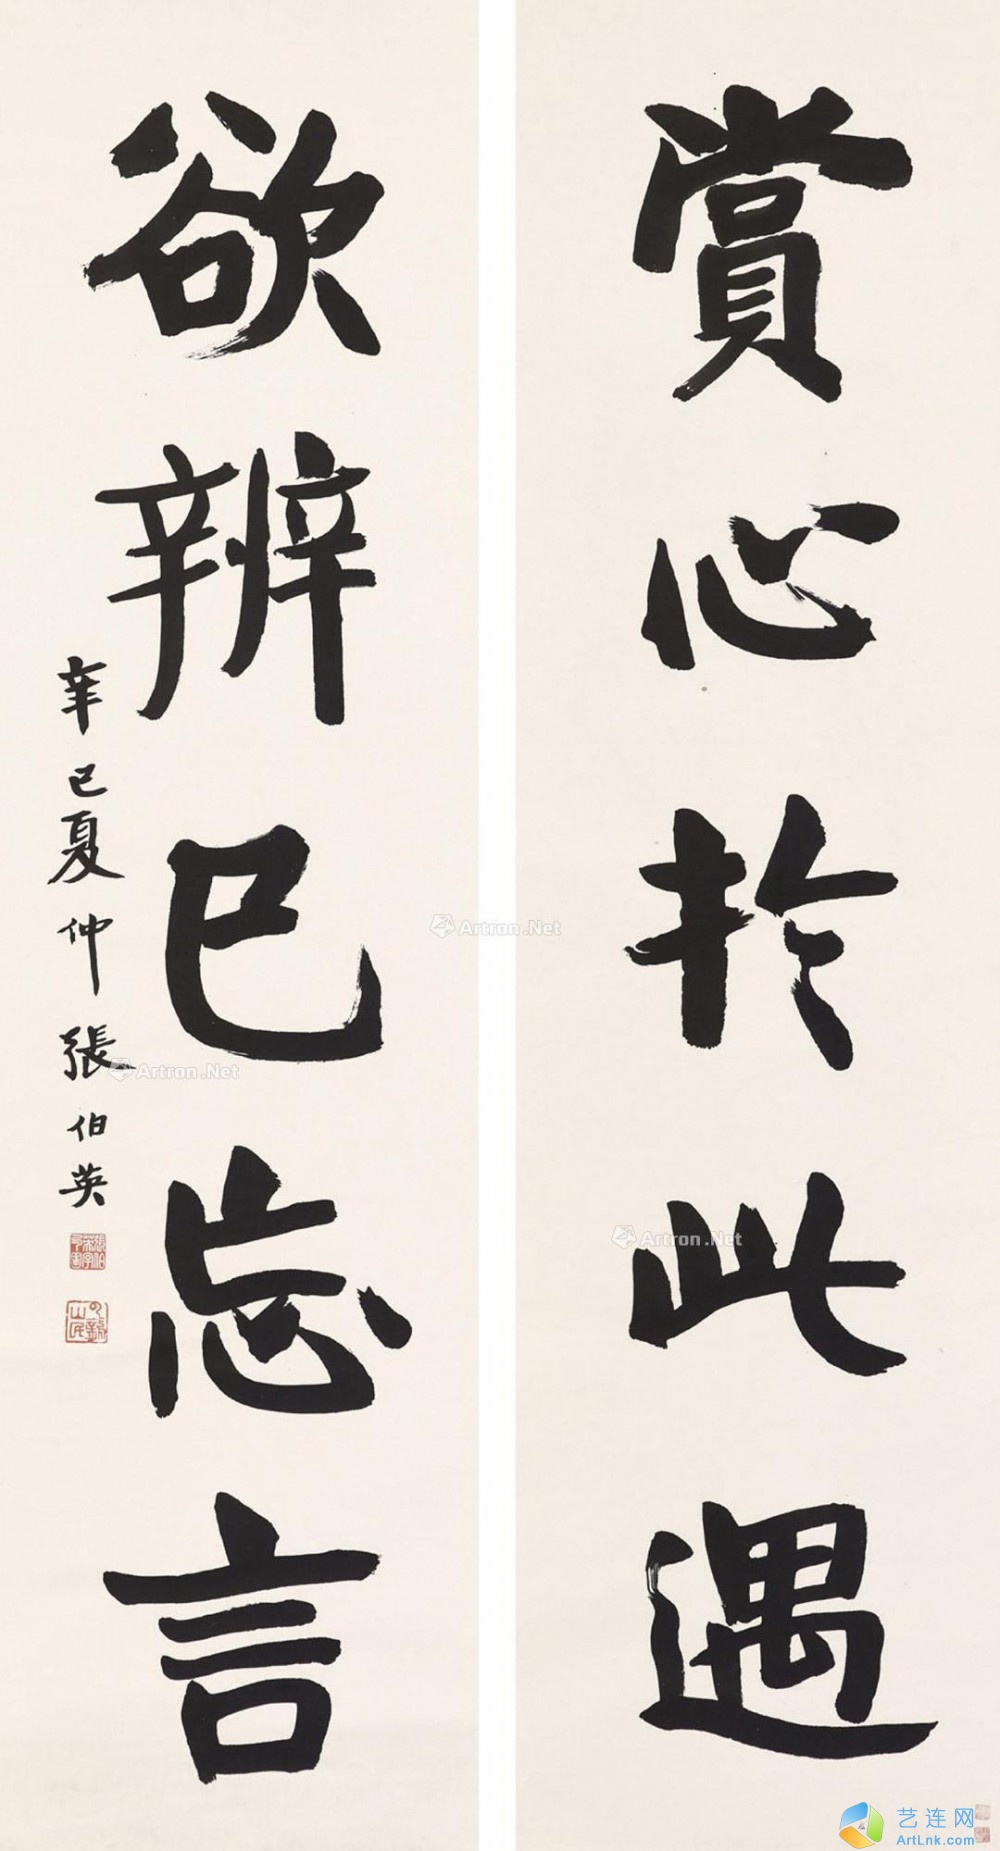 賞心於此遇
欲辨已忘言
辛巳夏仲張伯英
Artron.Net
Artron.Net
Artron.Net
艺连网
ArtLnk.com